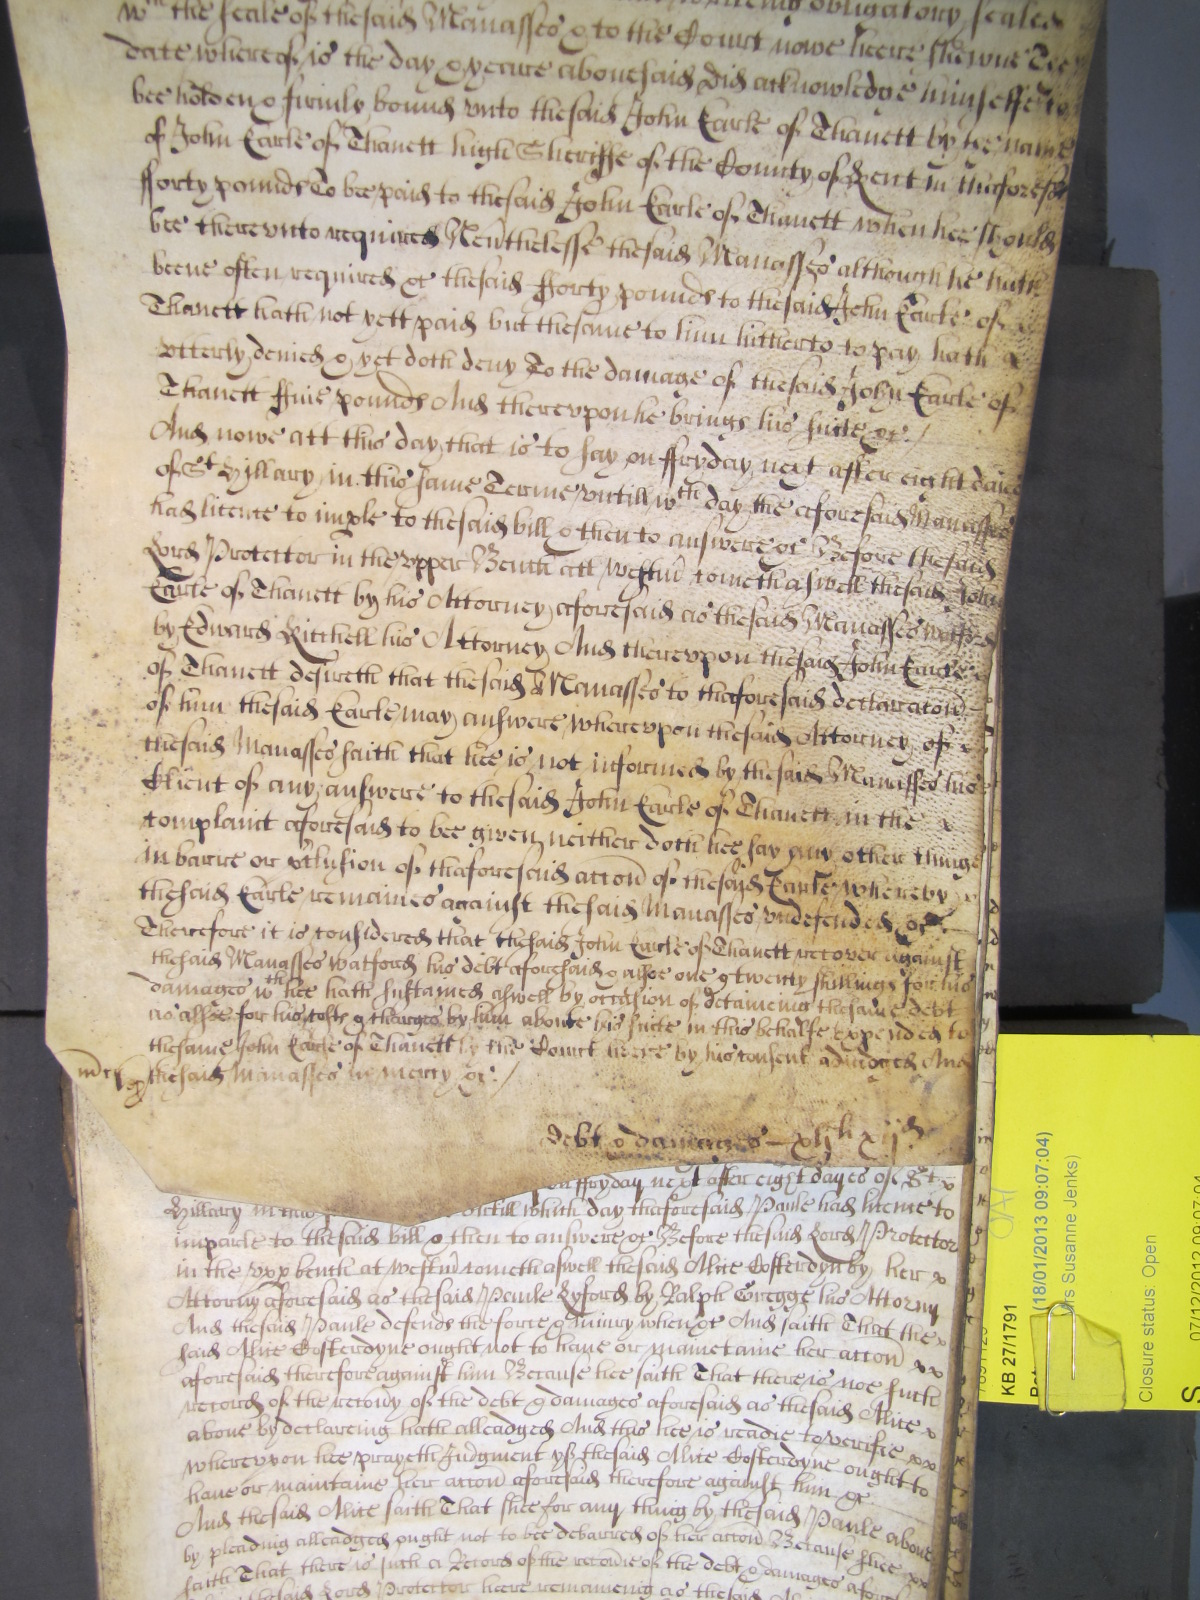 wth the seale of thesaid Manasses & to the Court nowe heere shewne The
date whereof is the day & yeare abouesaid did acknowledge himselfe to
bee holden & firmly bound vnto thesaid John Earle of Thanett by the name
of John Earle of Thanett high Sheriffe of the County of Kent in thaforesd
fforty pounds To bee paid to thesaid John Earle of Thanett when hee should
bee therevnto required Neuthelesse thesaid Manasses although he hath
beene often required &c thesaid fforty pounds to thesaid John Earle of x
Thanett hath not yett paid but thesame to him hitherto to pay hath x
vtterly denied & yet doth deny To the damage of thesaid John Earle of
Thanett ffiue pounds And therevpon he brings his suite &c./
And nowe att this day that is to say on ffryday next after eight daies
of St Hillary in this same Terme vntill wth day the aforesaid Manasses
had licence to imple to thesaid bill & then to answere &c Before thesaid
Lord Protector in the vpper Bench att Westm cometh aswell thesaid John
Earle of Thanett by his Attorney aforesaid as thesaid Manasses Watford
by Edward Kitchell his Attorney And therevpon thesaid John Earle
of Thanett desireth that thesaid Manasses to thaforesaid declaracon
of him thesaid Earle may answere wherevpon thesaid Attorney of x
thesaid Manasses saith that hee is not informed by thesaid Manasses his
Client of any answere to thesaid John Earle of Thanett in the x
complaint aforesaid to bee given neither doth hee say any other thinge
in barre or exclusion of thaforesaid accon of thesaid Earle whereby x
thesaid Earle remaines against thesaid Manasses vndefended &c
Therefore it is considered that thesaid John Earle of Thanett recover against
thesaid Manasses Watford his debt aforesaid & alsoe one & twenty shillings for his
damages wth hee hath sustained aswell by occasion of detaineing thesame debt
as alsoe for his costs & charges by him aboute his suite in this behalfe expended to
thesame John Earle of Thanett by the Court heere by his consent adiudged And
thesaid Manasses in mercy &c./
debt & damages – xlj li xij d
on ffryday next after eight dayes of St x
Hillary in this vntill which day thaforesaid Paule had licence to
imparle to thesaid bill & then to answere &c Before thesaid Lord Protector
in the vpp bench at Westm cometh aswell thesaid Alice Costerdyn by her x
Attorny aforesaid as thesaid Paule Lyford by Ralph Gregge his Attorny
And thesaid Paule defends the force & iniury when &c And saith That the x
said Alice Costerdyne ought not to haue or mainetaine her accon xx
aforesaid therefore against him Because hee saith That there is noe such
record of the recouy of the debt & damages aforesaid as thesaid Alice x
aboue by declareing hath alleadged And this hee is readie to verifie xx
wherevpon hee prayeth Judgment yf thesaid Alice Costerdyne ought to
haue or maintaine her accon aforesaid therefore against him &c
And thesaid Alice saith That shee for any thing by thesaid Paule aboue
by pleading alleadged ought not to bee debarred of her accon Because shee xx
saith That there is such a Record of the recouie of the debt & damages
thesaid Lord Protector heere remaineing as thesaid
KB 27/1791
(18/01/2013 09:07:04)
rs Susanne Jenks)
Closure status: Open